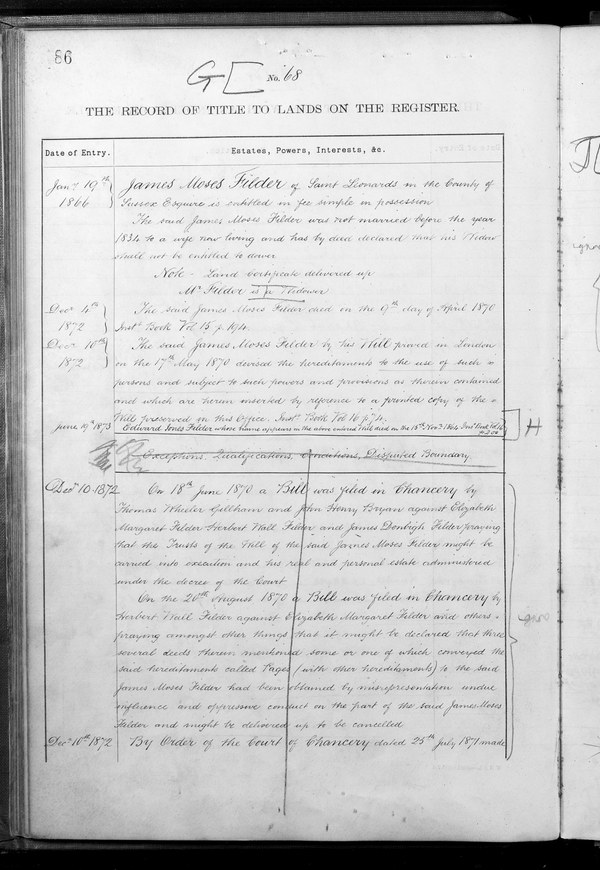 86
G No. 68
THE RECORD OF TITLE TO LANDS ON THE REGISTER.
Date of Entry. Estates, Powers, Interests, &c.
Jany 19th 1866 James Moses Filder of Saint Leonards in the County of
Sussex Esquire is entitled in fee simple in possession
The said James Moses Filder was not married before the year
1834 to a wife now living and has by deed declared that his Widow
shall not be entitled to dower
Note - Land Certificate delivered up
Mr Filder is a Widower
Decr 4th 1872 The said James Moses Filder died on the 9th day of April 1870
Inst. Book Vol 15 p. 194.
Decr 10th 1872 The said James Moses Filder by his Will proved in London
on the 17th May 1870 devised the hereditaments to the use of such
persons and subject to such powers and provisions as therein contained
and which are herein inserted by reference to a printed copy of the
Will preserved in this Office. Inst. Book Vol 16 p. 74.
June 19th 1873 Edward Jones Filder whose name appears in the above entered Will died on the 15th Novr 1864 Inst. Book Vol
H
Exceptions, Qualifications, Conditions, Disputed Boundary.
Decr 10. 1872 On 18th June 1870 a Bill was filed in Chancery by
Thomas Wheeler Gillham and John Henry Bryan against Elizabeth
Margaret Filder Herbert Wall Filder and James Denbigh Filder praying
that the Trusts of the Will of the said James Moses Filder might be
carried into execution and his real and personal estate administered
under the decree of the Court
On the 20th August 1870 a Bill was filed in Chancery by
Herbert Wall Filder against Elizabeth Margaret Filder and others
praying amongst other things that it might be declared that three
several deeds therein mentioned some or one of which conveyed the
said hereditaments called Pages (with other hereditaments) to the said
James Moses Filder had been obtained by misrepresentation undue
influence and oppressive conduct on the part of the said James Moses
Filder and might be delivered up to be cancelled
Decr 10th 1872 By Order of the Court of Chancery dated 25th July 1871 made